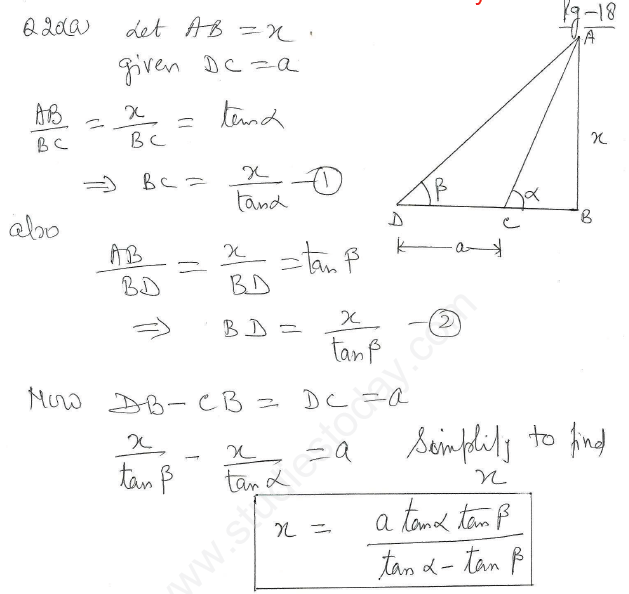 Q20(a) Let AB = x.
given DC = a
AB/BC = x/BC = tanα
⇒ BC = x/tanα —①
also
AB/BD = x/BD = tan β
⇒ BD = x/tanβ —②
Now DB − CB = DC = a
x/tan β − x/tan α = a Simplify to find
x
x = a tanα tan β / tan α − tan β
Pg-18
A
x
β
α
D
C
B
a
www.studiestoday.com